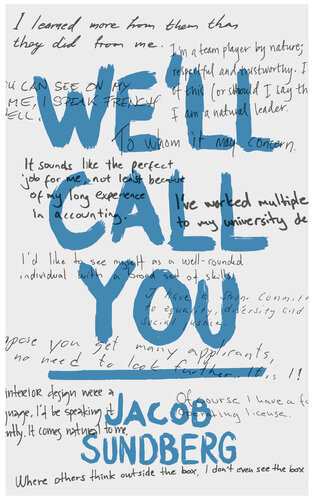 I learned more from them than
they did from me.
I'm a team player by nature;
respectful and trustworthy. I
OU CAN SEE ON MY
ME, I SPEAK FRENCH
ELL.
if this (or should I say th
I am a natural leader.
WE'LL
To whom it may concern.
It sounds like the perfect
job for me, not least because
of my long experience
in accounting.
I've worked multiple
to my university de
CALL
I'd like to see myself as a well-rounded
individual with a broad set of skills.
I have a strong commitm
to equality, diversity and
social justice.
YOU
pose you get many applicants,
no need to look further. It is I!
interior design were a
guage, I'd be speaking it
ntly. It comes natural to me.
Of course I have a fu
operating license.
JACOB
SUNDBERG
Where others think outside the box, I don't even see the box